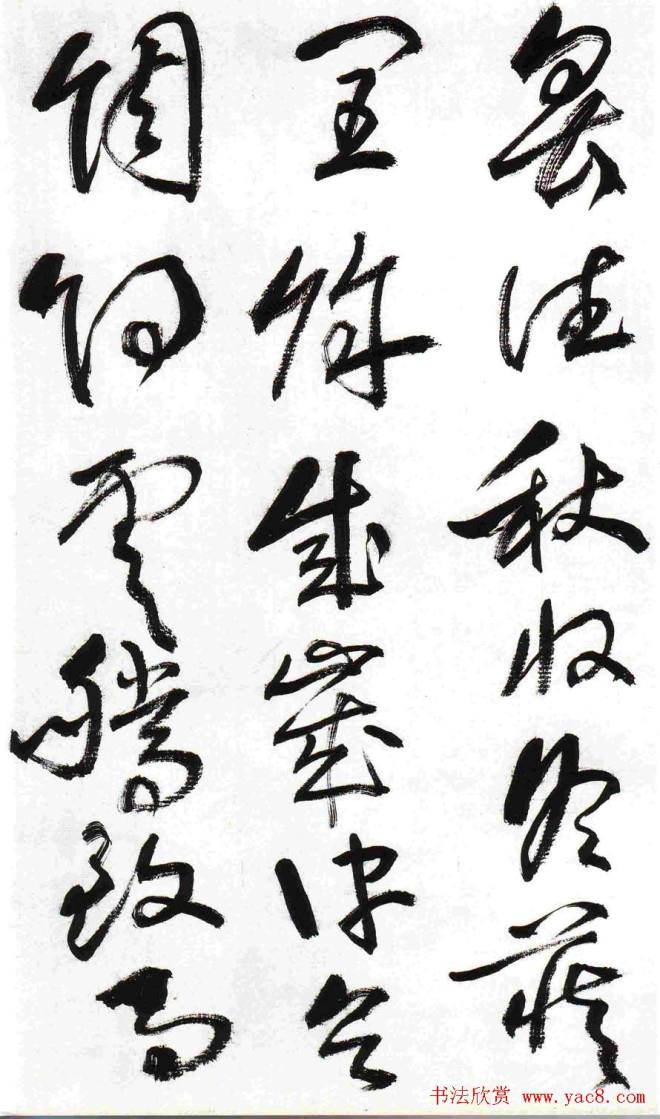 暑往秋收冬藏
閏餘成歲律呂
調陽雲騰致雨
书法欣赏 www.yac8.com